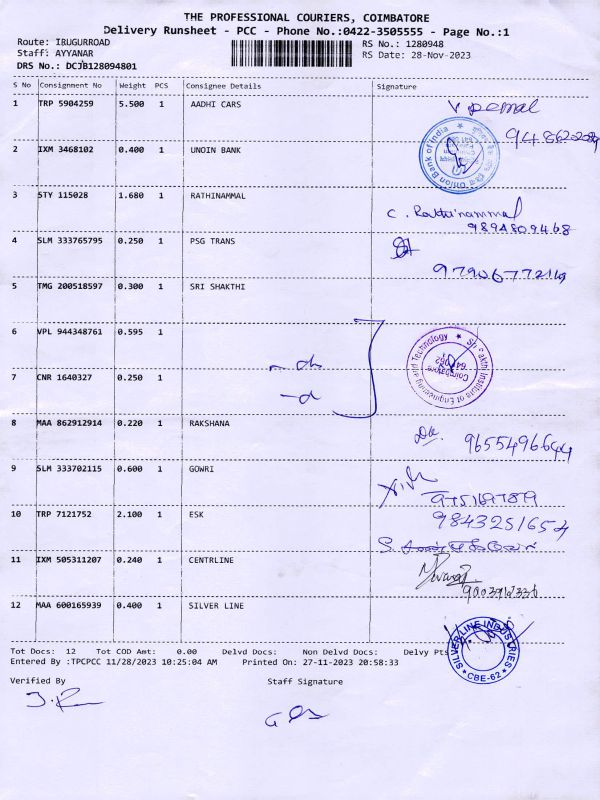 THE PROFESSIONAL COURIERS, COIMBATORE
Delivery Runsheet - PCC - Phone No.:0422-3505555 - Page No.:1
Route: IBUGURROAD
RS No.: 1280948
Staff: AYYANAR
RS Date: 28-Nov-2023
DRS No.: DCJB128094801
S No Consignment No Weight PCS Consignee Details Signature
1 TRP 5904259 5.500 1 AADHI CARS
2 IXM 3468102 0.400 1 UNOIN BANK
Union Bank of India
3 STY 115028 1.680 1 RATHINAMMAL
C. Rathinammal
9894809468
4 SLM 333765795 0.250 1 PSG TRANS
5 TMG 200518597 0.300 1 SRI SHAKTHI
6 VPL 944348761 0.595 1
7 CNR 1640327 0.250 1
Institute of Engineering and Technology
Coimbatore
8 MAA 862912914 0.220 1 RAKSHANA
9655496644
9 SLM 333702115 0.600 1 GOWRI
10 TRP 7121752 2.100 1 ESK
9843251654
11 IXM 505311207 0.240 1 CENTRLINE
12 MAA 600165939 0.400 1 SILVER LINE
SILVER LINE INDUSTRIES
CBE-62
Tot Docs: 12 Tot COD Amt: 0.00 Delvd Docs: Non Delvd Docs: Delvy Pts
Entered By :TPCPCC 11/28/2023 10:25:04 AM Printed On: 27-11-2023 20:58:33
Verified By Staff Signature